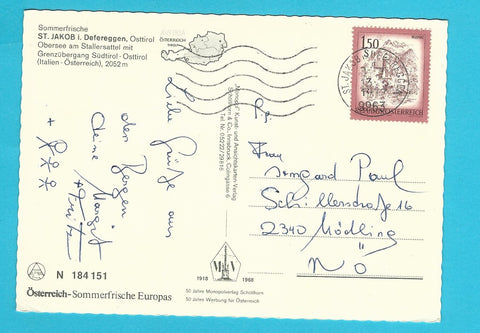 Sommerfrische
ST. JAKOB i. Defereggen, Osttirol
Obersee am Stallersattel mit
Grenzübergang Südtirol - Osttirol
(Italien - Österreich), 2052 m
Liebe Grüße aus
den Bergen
Deine Margit
+ Fritz
ÖSTERREICH
Monopol- Kunst- und Ansichtskarten-Verlag
Schöllhorn & Co., Innsbruck, Colingasse 6
Tel. Nr. 05222/29816
1,50
REPUBLIK ÖSTERREICH
ST. JAKOB
9963
Frau
Irmgard Paul
Schillerstraße 16
2340 Mödling
NÖ
N 184 151
1918
1968
50 Jahre Monopolverlag Schöllhorn
50 Jahre Werbung für Österreich
Österreich-Sommerfrische Europas